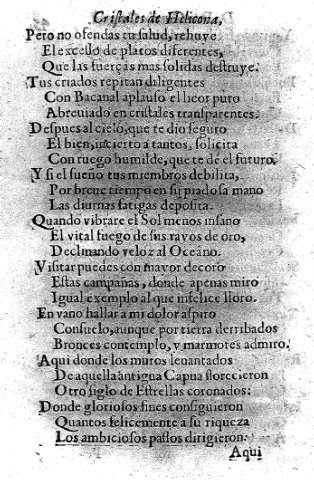 Cristales de Helicona,
Pero no ofendas tu salud, rehuye
El excesso de platos diferentes,
Que las fuerças mas solidas destruye.
Tus criados repitan diligentes
Con Bacanal aplauso el licor puro
Abreuiado en cristales transparentes.
Despues al cielo, que te dio seguro
El bien, incierto a tantos, solicita
Con ruego humilde, que te dè el futuro.
Y si el sueño tus miembros debilita,
Por breue tiempo en su piadosa mano
Las diurnas fatigas deposita.
Quando vibrare el Sol menos insano
El vital fuego de sus rayos de oro,
Declinando veloz al Oceano.
Visitar puedes con mayor decoro
Estas campañas, donde apenas miro
Igual exemplo al que infelice lloro.
En vano hallar a mi dolor aspiro
Consuelo, aunque por tierra derribados
Bronces contemplo, y marmores admiro.
Aqui donde los muros leuantados
De aquella antigua Capua florecieron
Otro siglo de Estrellas coronados:
Donde gloriosos fines consiguieron
Quantos felicemente a su riqueza
Los ambiciosos passos dirigieron.
Aqui